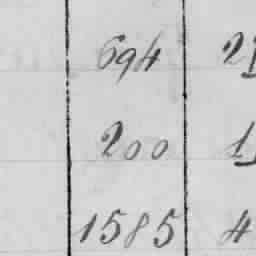 694 2
200 1
1585 4